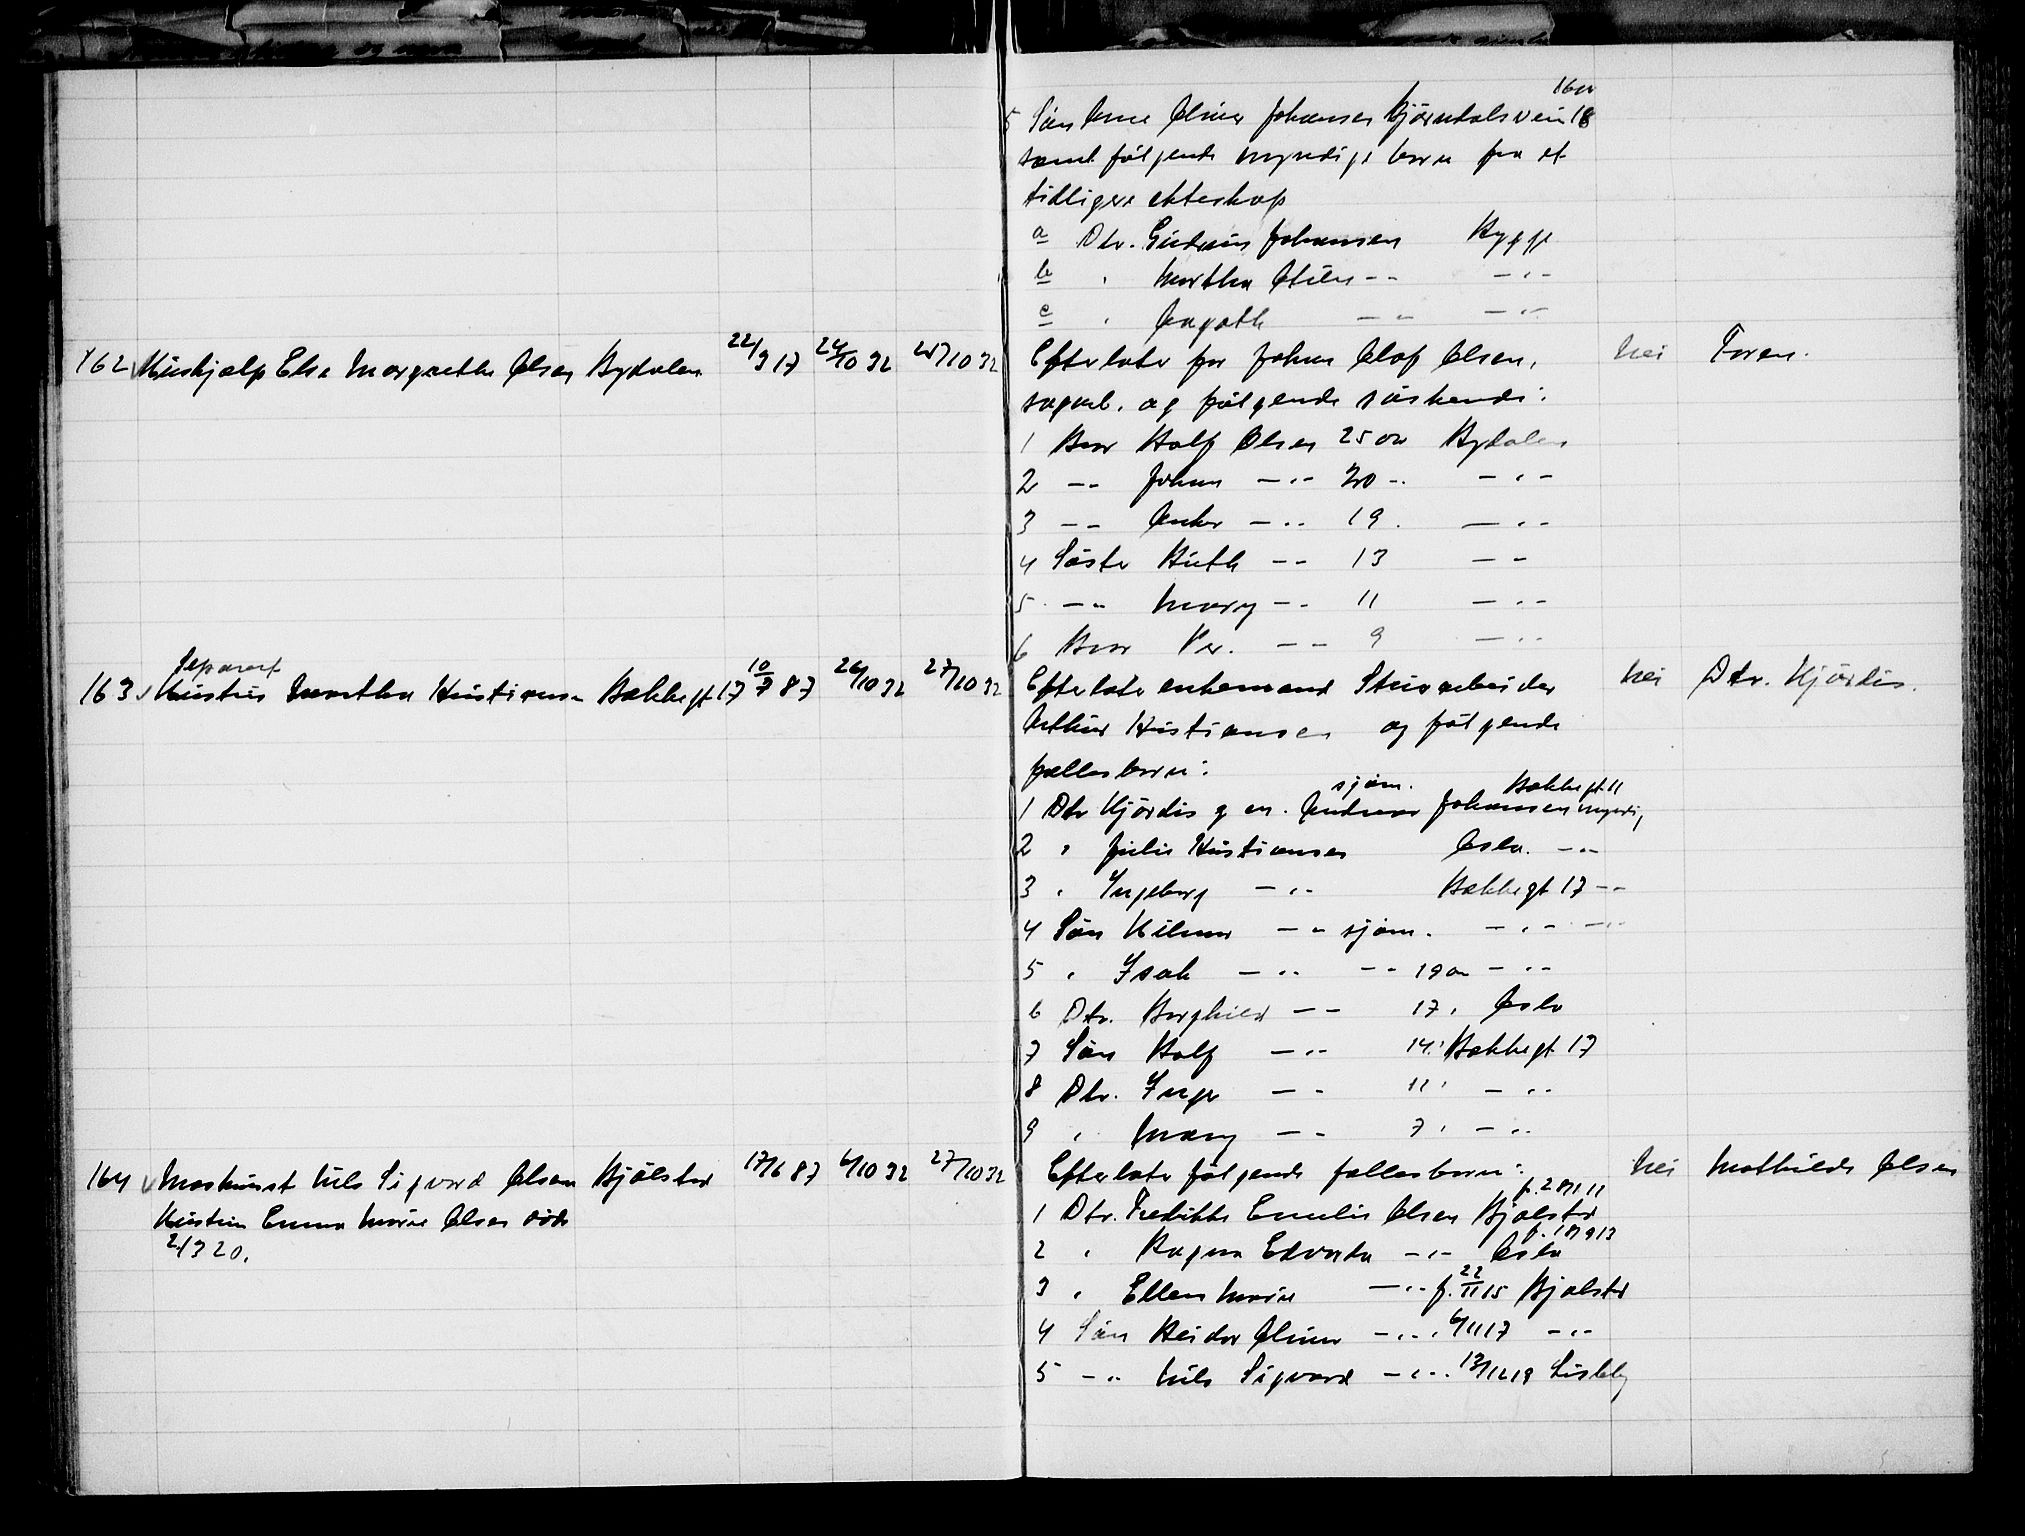 16 år
5 Søn Arne Elmer Johansen Bjørndalsvein 18
samt følgende myndige barn fra et
tidligere ekteskap
a Dtr. Gudrun Johansen Rygge
b " Martha Otilie - - - " -
c " Aagoth - " - " -
162 Hushjælp Else Margrethe Olsen Rydalen 22/3 17 24/10 32 25/10 32 Efterlater far Johan Olaf Olsen, nei Faren.
sagarb. og følgende søskende:
1 Bror Rolf Olsen 25 år Rydalen
2 - - Johan - " - 20 - - " -
3 - - Anker - " - 19 . - " -
4 Søster Ruth - - 13 - -
5 - " Mary - - 11 - " -
6 Bror Per. - - 9 - " -
Separert
163 Hustru Martha Kristiansen Bakkegt 17 10/7 87 26/10 32 27/10 32 Efterlater enkemand Stuearbeider nei Dtr. Hjørdis.
Arthur Kristiansen og følgende
fællesbarn:
sjøm. Bakkegt 11
1 Dtr Hjørdis g. m. Andreas Johansen myndig
2 " Julie Kristiansen Oslo. - "
3 " Ingeborg - " - Bakkegt 17 - -
4 Søn Hilmar - " sjøm. - " - - " -
5 " Isak - " - - - 19 år - " -
6 Dtr. Borghild - - 17 " Oslo
7 Søn Rolf - " - 14 " Bakkegt 17
8 Dtr. Inger - - 11 " - " -
9 " Mary - - 7 " - " -
164 Maskinist Nils Sigvard Olsen Kjølstad 17/6 87 6/10 32 27/10 32 Efterlater følgende fællesbarn: nei Mathilde Olsen
Hustru Emma Marie Olsen døde
2/3 20.
f. 28/1 11
1 Dtr. Fredrikke Emilie Olsen Kjølstad
f. 18/9 13
2 " Ragna Edvarda - " - Oslo
3 " Ellen Marie - " - f. 22/11 15 Kjølstad
4 Søn Reidar Elmer - " - " 6/11 17 - " -
5 - " Nils Sigvard - " - " 13/12 19 Lisleby